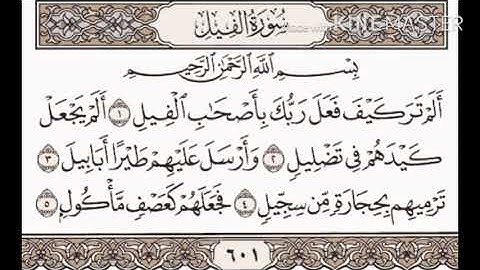 سُورَةُ الفِيلِ
KINEMASTER
بِسْمِ اللَّهِ الرَّحْمَٰنِ الرَّحِيمِ
أَلَمْ تَرَ كَيْفَ فَعَلَ رَبُّكَ بِأَصْحَابِ الْفِيلِ ١ أَلَمْ يَجْعَلْ
كَيْدَهُمْ فِي تَضْلِيلٍ ٢ وَأَرْسَلَ عَلَيْهِمْ طَيْرًا أَبَابِيلَ ٣
تَرْمِيهِم بِحِجَارَةٍ مِّن سِجِّيلٍ ٤ فَجَعَلَهُمْ كَعَصْفٍ مَّأْكُولٍ ٥
٦٠١